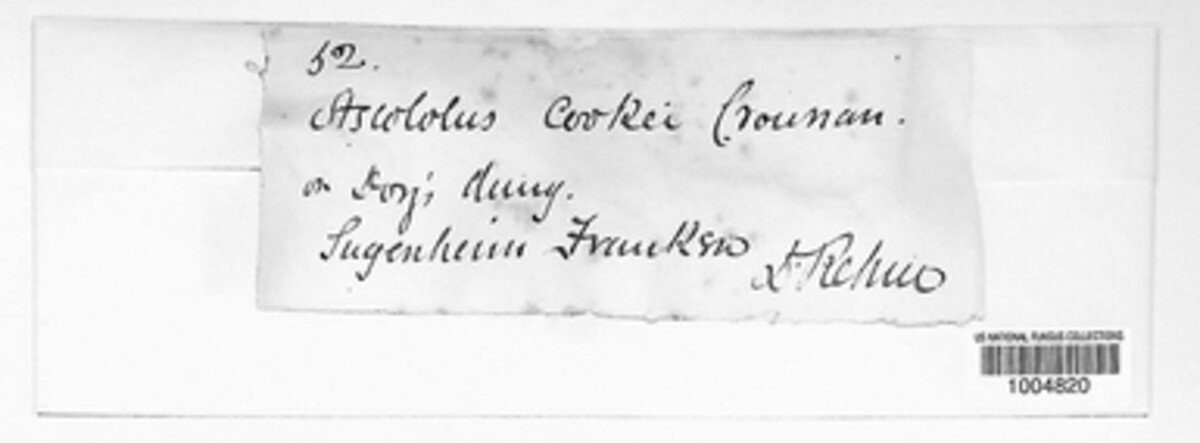 52.
Ascobolus Cookei Crouan.
on Dog's dung.
Sugenheim Franken
Dr. Rehm
US NATIONAL FUNGUS COLLECTIONS
1004820